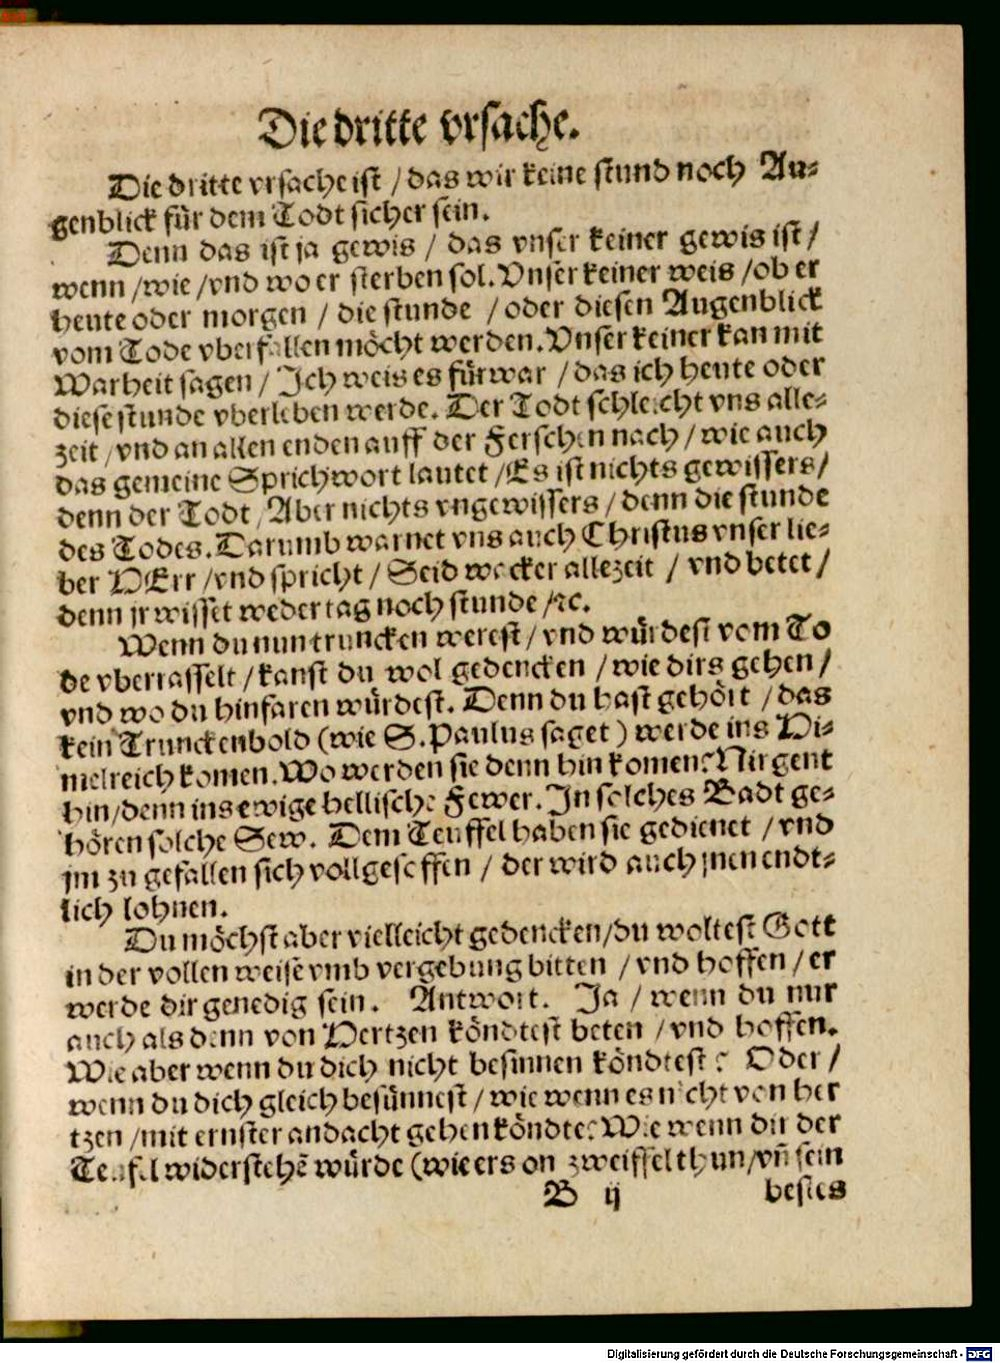 Die dritte vrsache.
Die dritte vrsache ist / das wir keine stund noch Au-
genblick für dem Todt sicher sein.
Denn das ist ja gewis / das vnser keiner gewis ist /
wenn / wie / vnd wo er sterben sol. Vnser keiner weis / ob er
heute oder morgen / die stunde / oder diesen Augenblick
vom Tode vberfallen möcht werden. Vnser keiner kan mit
Warheit sagen / Ich weis es fürwar / das ich heute oder
diese stunde vberleben werde. Der Todt schleicht vns alle-
zeit / vnd an allen enden auff der Ferschen nach / wie auch
das gemeine Sprichwort lautet / Es ist nichts gewissers /
denn der Todt / Aber nichts vngewissers / denn die stunde
des Todes. Darumb warnet vns auch Christus vnser lie-
ber HErr / vnd spricht / Seid wacker allezeit / vnd betet /
denn jr wisset weder tag noch stunde / ꝛc.
Wenn du nun truncken werest / vnd würdest vom To
de vberrasselt / kanst du wol gedencken / wie dirs gehen /
vnd wo du hinfaren würdest. Denn du hast gehört / das
kein Trunckenbold (wie S. Paulus saget) werde ins Hi-
melreich komen. Wo werden sie denn hin komen? Nirgent
hin / denn ins ewige hellische Fewer. In solches Badt ge-
hören solche Sew. Dem Teuffel haben sie gedienet / vnd
jm zu gefallen sich vollgesoffen / der wird auch jnen endt-
lich lohnen.
Du möchst aber vielleicht gedencken / du woltest Gott
in der vollen weise vmb vergebung bitten / vnd hoffen / er
werde dir genedig sein. Antwort. Ja / wenn du nur
auch als denn von Hertzen köndtest beten / vnd hoffen.
Wie aber wenn du dich nicht besinnen köndtest? Oder /
wenn du dich gleich besünnest / wie wenn es nicht von her
tzen / mit ernster andacht gehen köndte? Wie wenn dir der
Teufel widerstehē würde (wie ers on zweiffel thun / vn̄ sein
B ij bestes
Digitalisierung gefördert durch die Deutsche Forschungsgemeinschaft - DFG